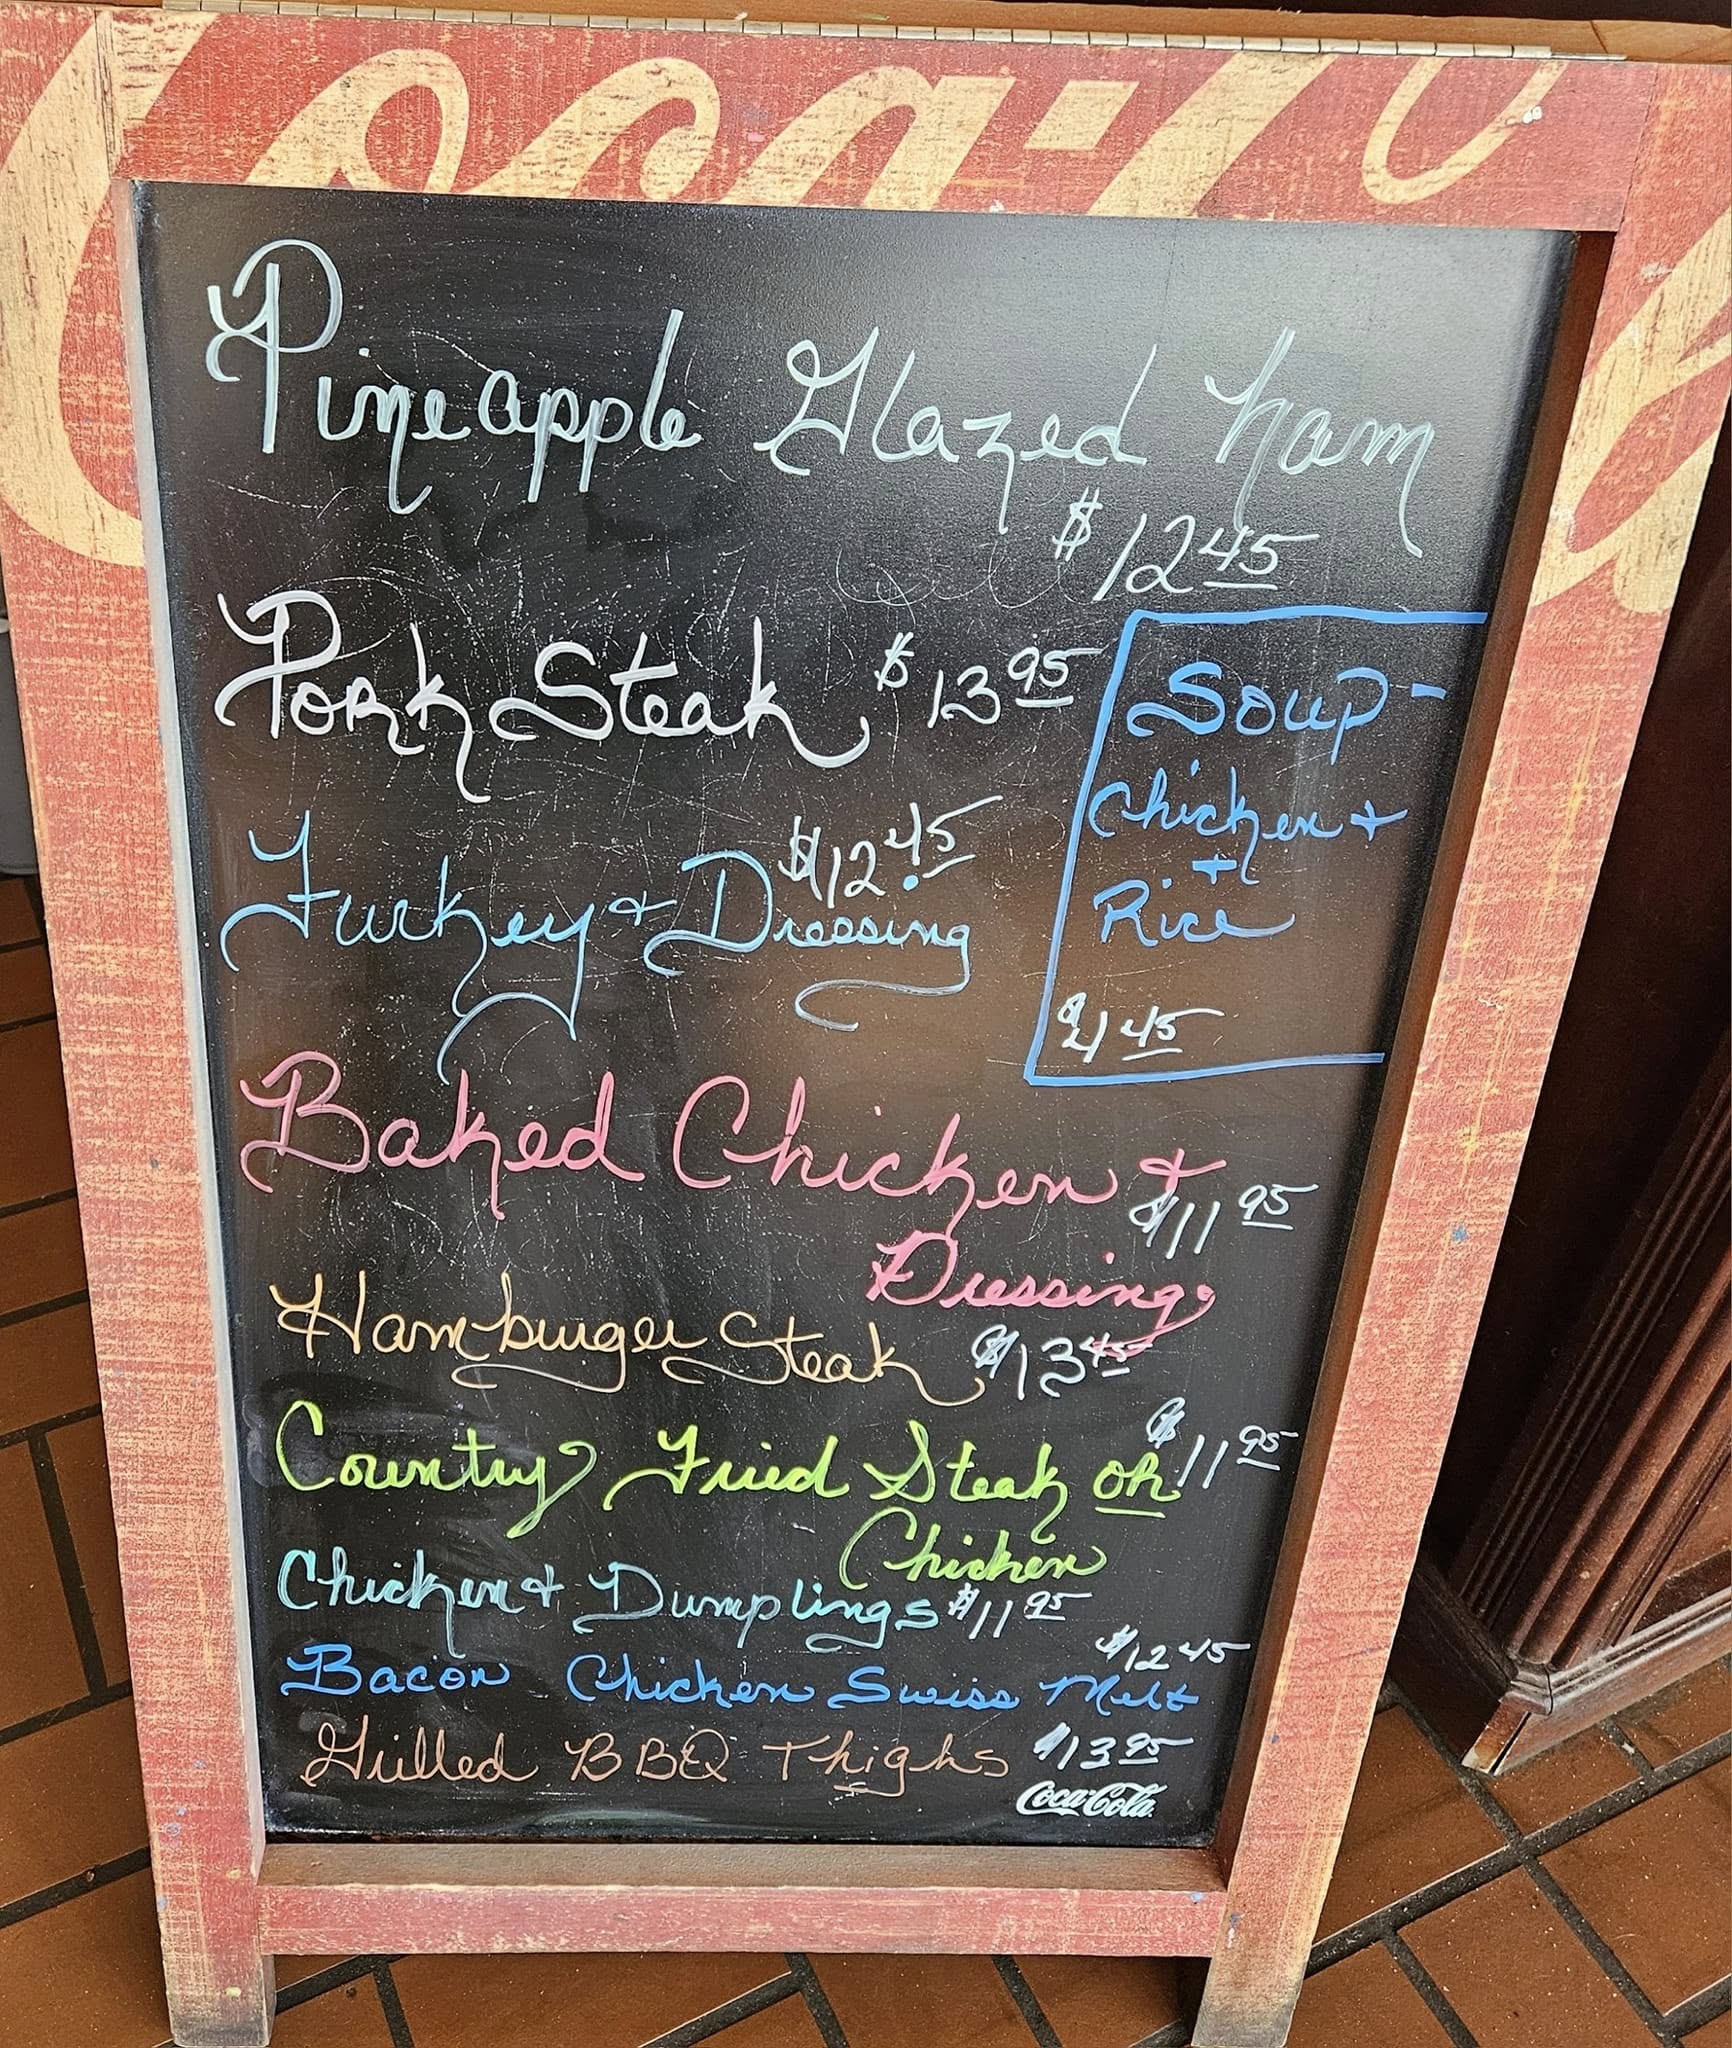 Coca-Co
Pineapple Glazed Ham
$12 45
Pork Steak $13 95
Soup-
Chicken +
+
Rice
$4 45
Turkey + Dressing $12.45
Baked Chicken +
Dressing $11 95
Hamburger Steak $13 45
Country Fried Steak or $11 95
Chicken
Chicken + Dumplings $11 95
Bacon Chicken Swiss Melt $12 45
Grilled BBQ Thighs $13 95
Coca-Cola